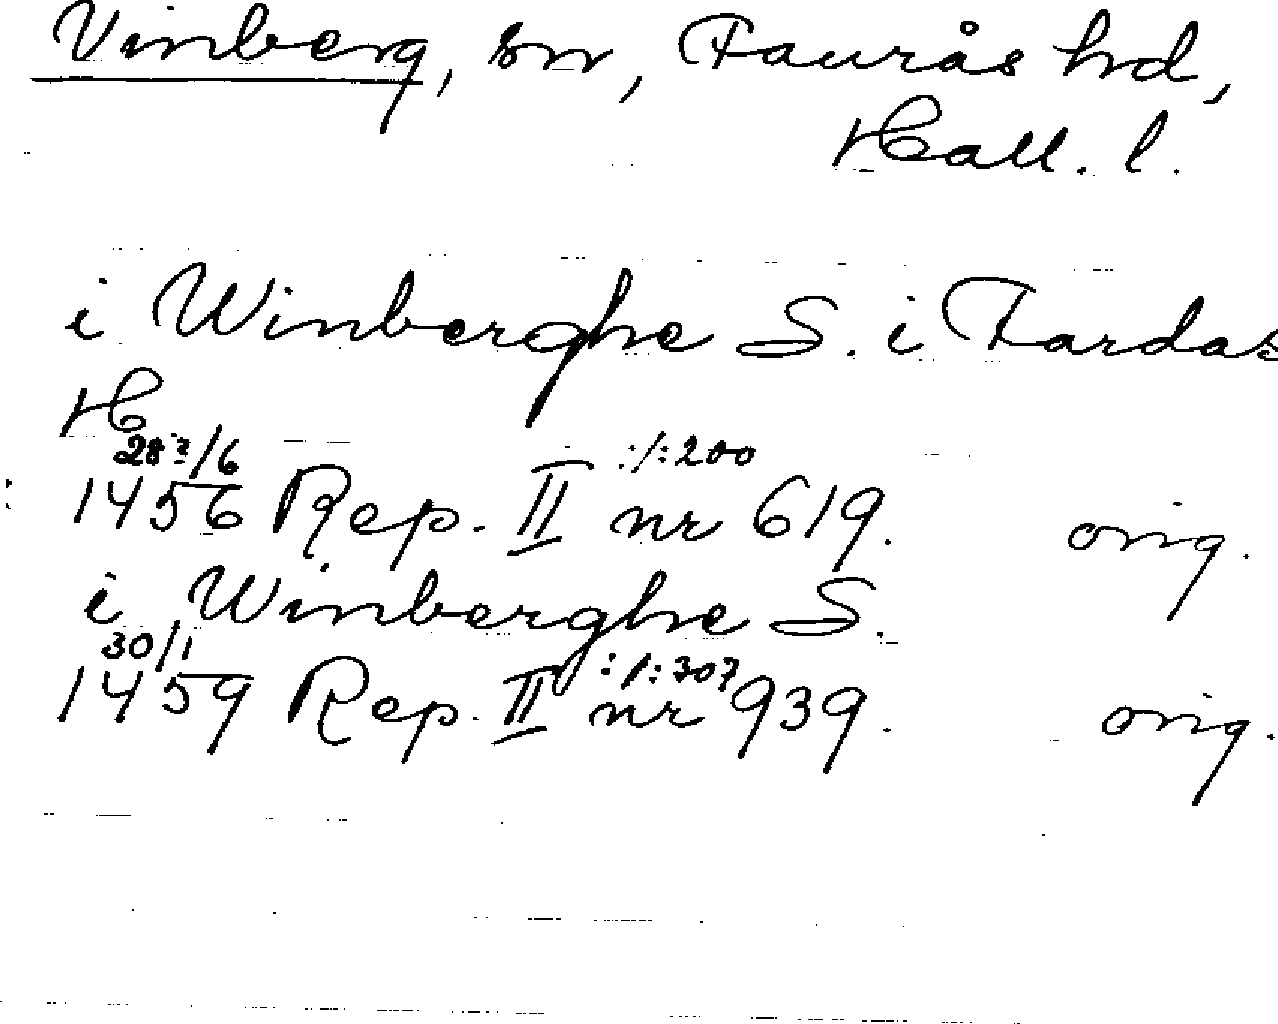 Vinberg, sn, Faurås hrd,
Hall. l.
i Winberghe S. i Fardas
H
28?/6 :/:200
1456 Rep. II nr 619. orig.
i Winberghe S.
30/1 :/:307
1459 Rep. II nr 939. orig.